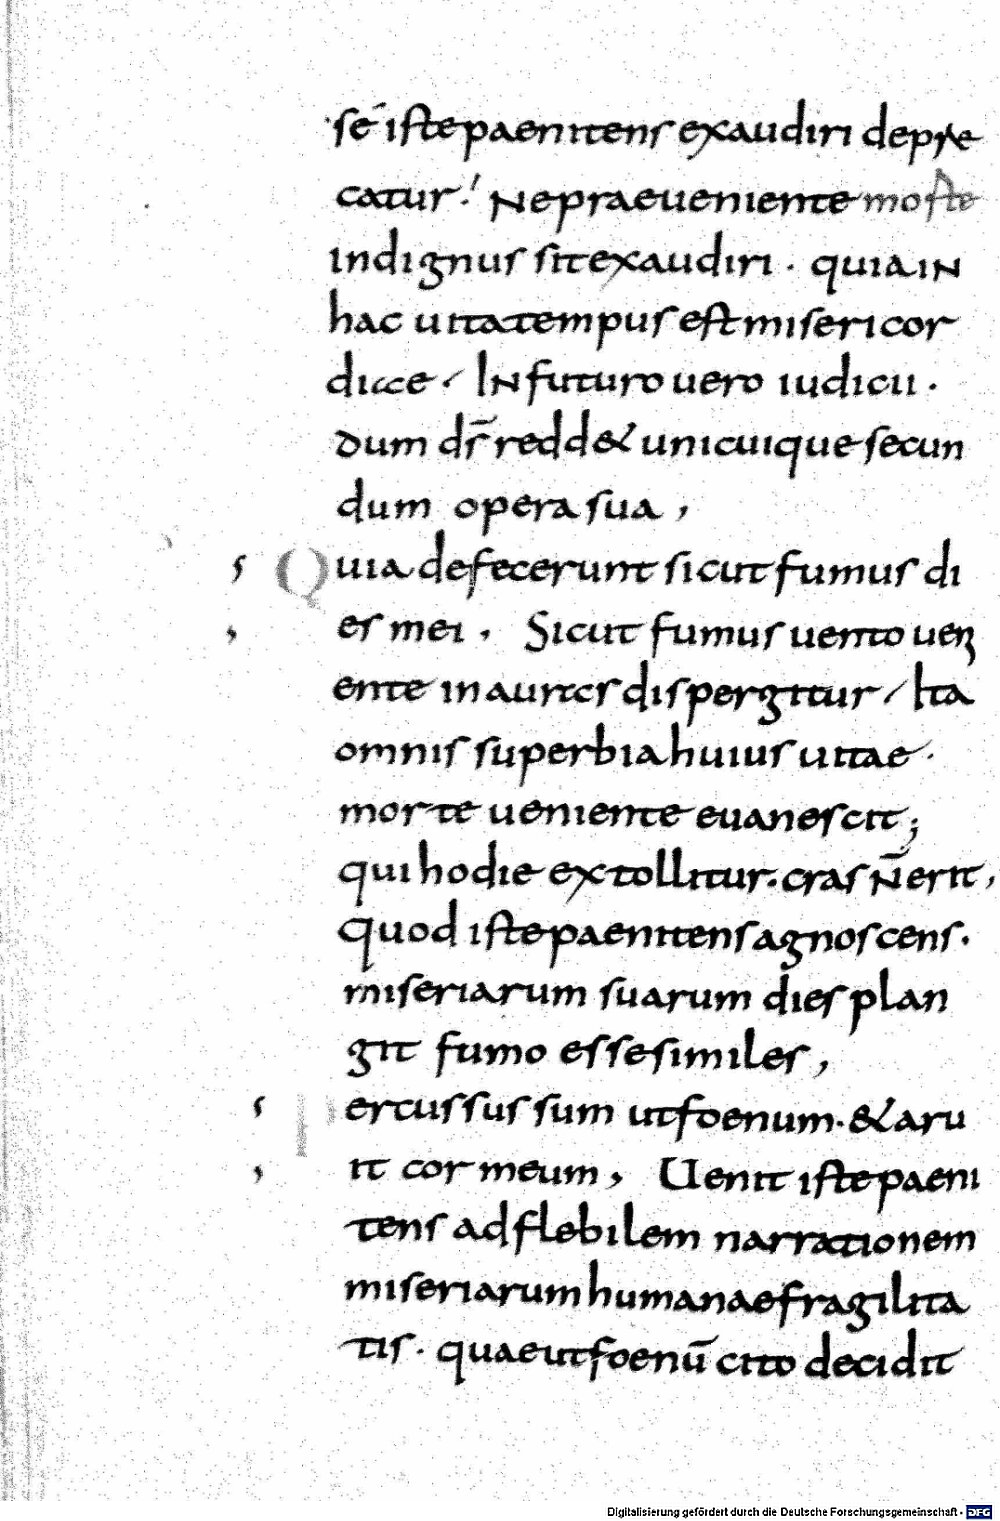 sē iste paenitens exaudiri depre
catur. Ne praeueniente morte
indignus sit exaudiri. quia in
hac uita tempus est misericor
diae. In futuro uero iudicii.
dum ds̄ redd& unicuique secun
dum opera sua,
Quia defecerunt sicut fumus di
es mei. Sicut fumus uento ueh
ente in aures dispergitur. Ita
omnis superbia huius uitae.
morte ueniente euanescit;
qui hodie extollitur. cras n̄ erit,
quod iste paenitens agnoscens.
miseriarum suarum dies plan
git fumo esse similes,
Percussus sum ut foenum. & aru
it cor meum, Uenit iste paeni
tens ad flebilem narrationem
miseriarum humanae fragilita
tis. quae ut foenū cito decidit
Digitalisierung gefördert durch die Deutsche Forschungsgemeinschaft - DFG